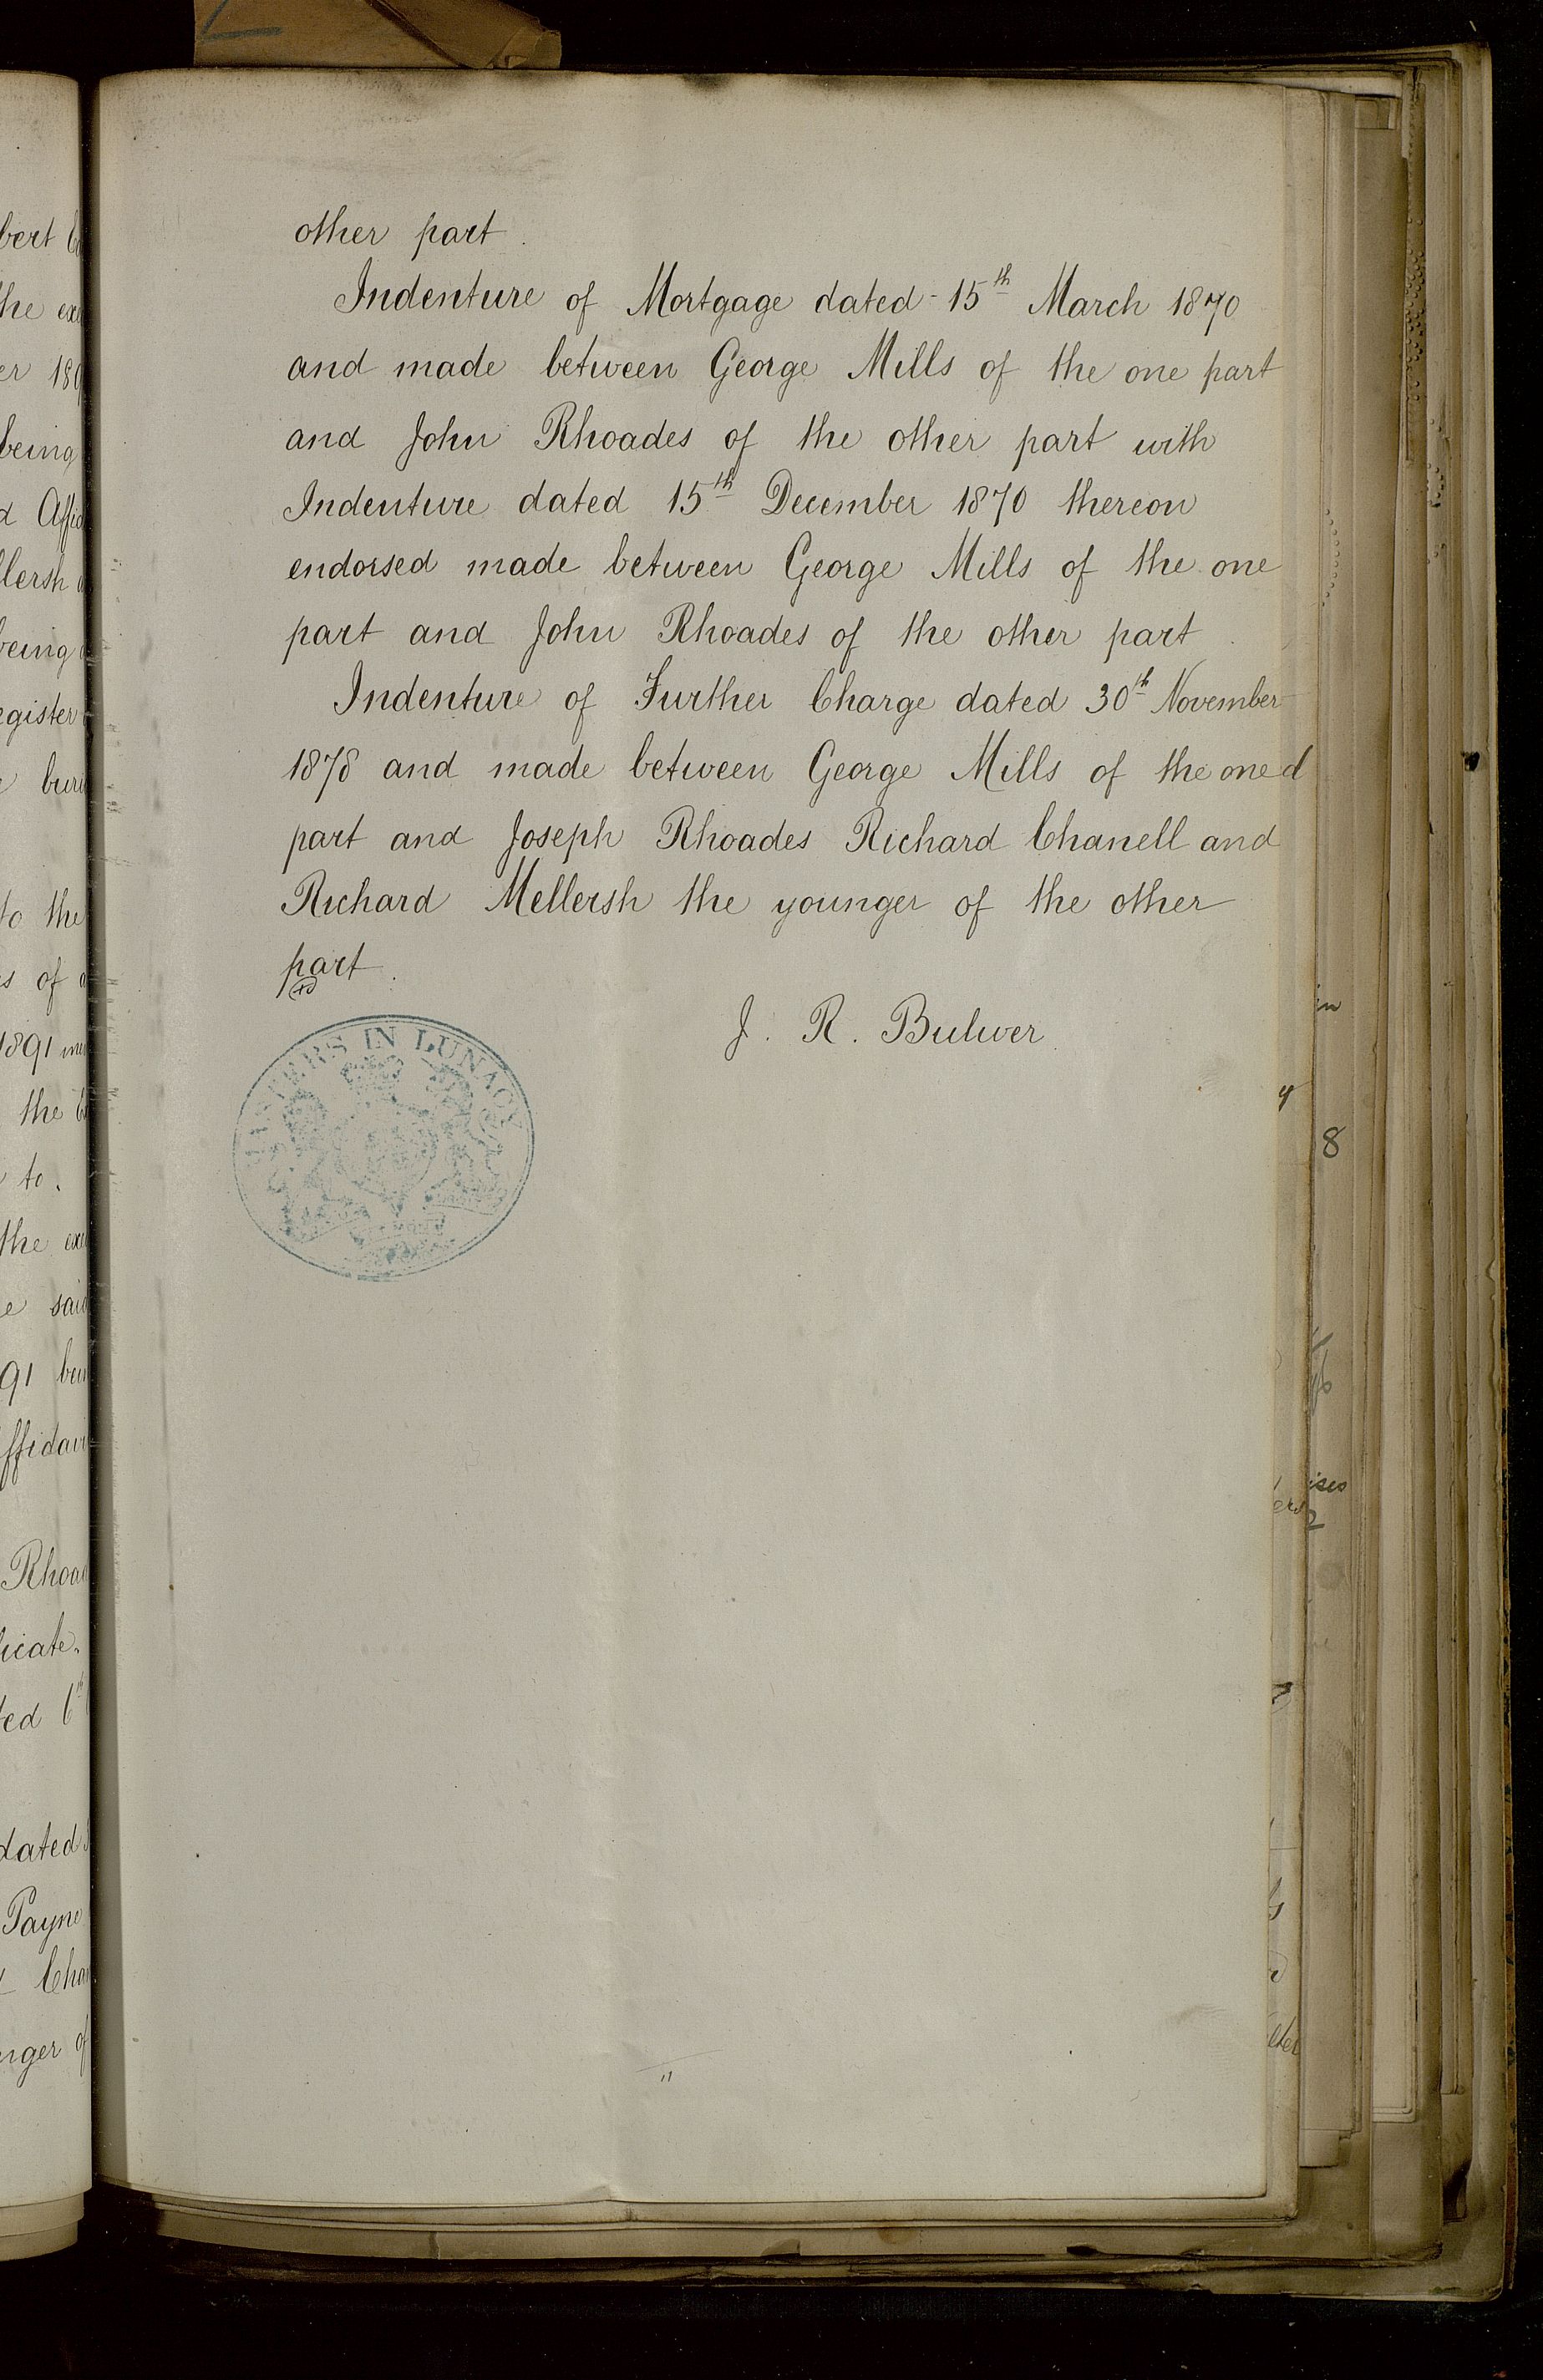 other part.
Indenture of Mortgage dated 15th March 1870
and made between George Mills of the one part
and John Rhoades of the other part with
Indenture dated 15th December 1870 thereon
endorsed made between George Mills of the one
part and John Rhoades of the other part.
Indenture of Further Charge dated 30th November
1878 and made between George Mills of the one
part and Joseph Rhoades Richard Chanell and
Richard Mellersh the younger of the other
part.
J. R. Bulwer
MASTERS IN LUNACY
bert
the
being
the
1891
the
to.
the
said
91
dated
Payne
of
8